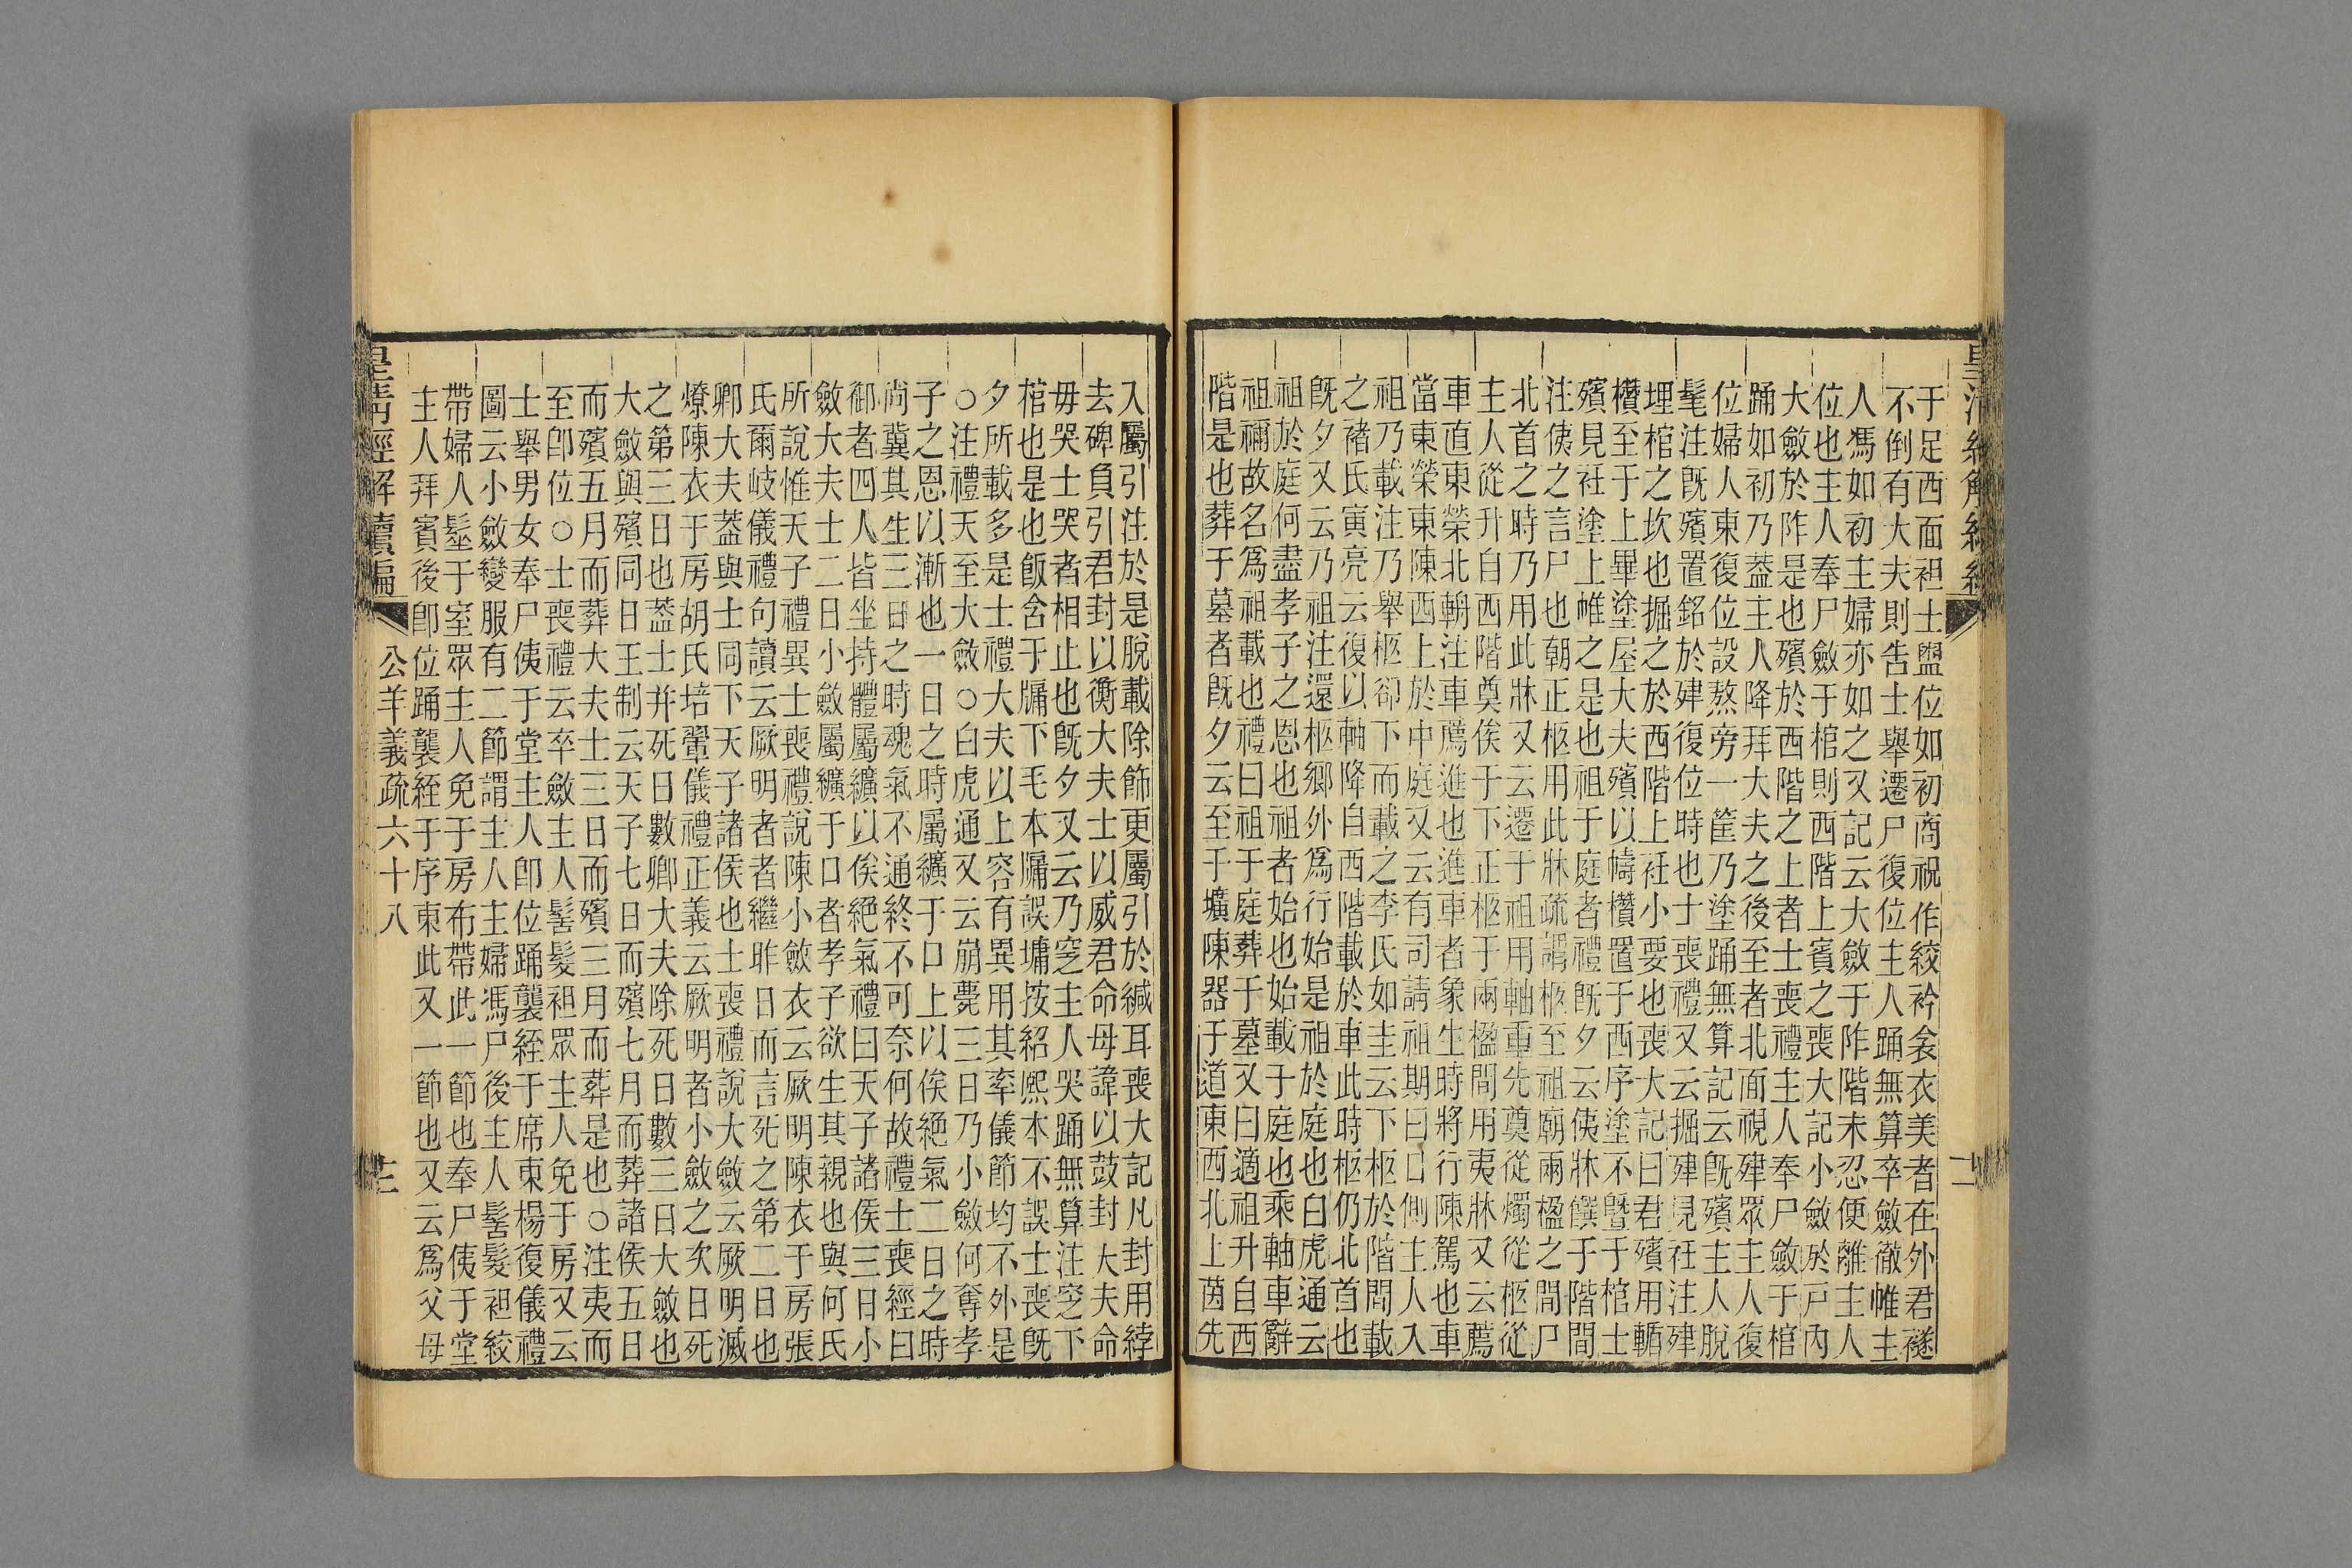 皇清經解續編
于足西面袒士盥位如初商祝作絞衿衾衣美者在外君襚
不倒有大夫則告士舉遷尸復位主人踊無算卒斂徹帷主
人馮如初主婦亦如之又記云大斂于阼階未忍便離主人
位也主人奉尸斂于棺則西階上賓之喪大記小斂於戶內
大斂於阼是也殯於西階之上者士喪禮主人奉尸斂于棺
踊如初乃蓋主人降拜大夫之後至者北面視肂眾主人復
位婦人東復位設熬旁一筐乃塗踊無算記云既殯主人脫
髦注既殯置銘於肂復位時也士喪禮又云掘肂見衽注肂
埋棺之坎也掘之於西階上衽小要也喪大記曰君殯用輴
欑至于上畢塗屋大夫殯以幬欑置于西序塗不曁于棺士
殯見衽塗上帷之是也祖于庭者禮既夕云侇牀饌于階間
注侇之言尸也朝正柩用此牀疏謂柩至祖廟兩楹之間尸
北首之時乃用此牀又云遷于祖用軸重先奠從燭從柩從
主人從升自西階奠俟于下正柩于兩楹間用夷牀又云薦
車直東榮北輈注車薦進也進車者象生時將行陳駕也車
當東榮東陳西上於中庭又云有司請祖期曰日側主人入
祖乃載注乃舉柩卻下而載之李氏如圭云下柩於階間載
之褚氏寅亮云復以軸降自西階載於車此時柩仍北首也
既夕又云乃祖注還柩鄉外爲行始是祖於庭也白虎通云
祖於庭何盡孝子之恩也祖者始也始載于庭也乘軸車辭
祖禰故名爲祖載也禮曰祖于庭葬于墓又曰適祖升自西
階是也葬于墓者既夕云至于壙陳器于道東西北上茵先
入屬引注於是脫載除飾更屬引於緘耳喪大記凡封用綍
去碑負引君封以衡大夫士以咸君命毋譁以鼓封大夫命
毋哭士哭者相止也既夕又云乃窆主人哭踊無算注窆下
棺也是也飯含于牖下毛本牖誤墉按紹熙本不誤士喪既
夕所載多是士禮大夫以上容有異用其率儀節均不外是
○注禮天至大斂○白虎通又云崩薨三日乃小斂何奪孝
子之恩以漸也一日之時屬纊于口上以俟絕氣二日之時
尚冀其生三日之時魂氣不通終不可奈何故禮士喪經曰
御者四人皆坐持體屬纊以俟絕氣禮曰天子諸侯三日小
斂大夫士二日小斂屬纊于口者孝子欲生其親也與何氏
所說惟天子禮異士喪禮說陳小斂衣云厥明陳衣于房張
氏爾岐儀禮句讀云厥明者者繼昨日而言死之第二日也
卿大夫蓋與士同下天子諸侯也士喪禮說大斂云厥明滅
燎陳衣于房胡氏培翬儀禮正義云厥明者小斂之次日死
之第三日也蓋士并死日數卿大夫除死日數三日大斂也
大斂與殯同日王制云天子七日而殯七月而葬諸侯五日
而殯五月而葬大夫士三日而殯三月而葬是也○注夷而
至卽位○士喪禮云卒斂主人髺髮袒眾主人免于房又云
士舉男女奉尸侇于堂主人卽位踊襲絰于席東楊復儀禮
圖云小斂變服有二節謂主人主婦馮尸後主人髺髮袒絞
帶婦人髽于室眾主人免于房布帶此一節也奉尸侇于堂
主人拜賓後卽位踊襲絰于序東此又一節也又云爲父母
皇清經解續編 公羊義疏六十八